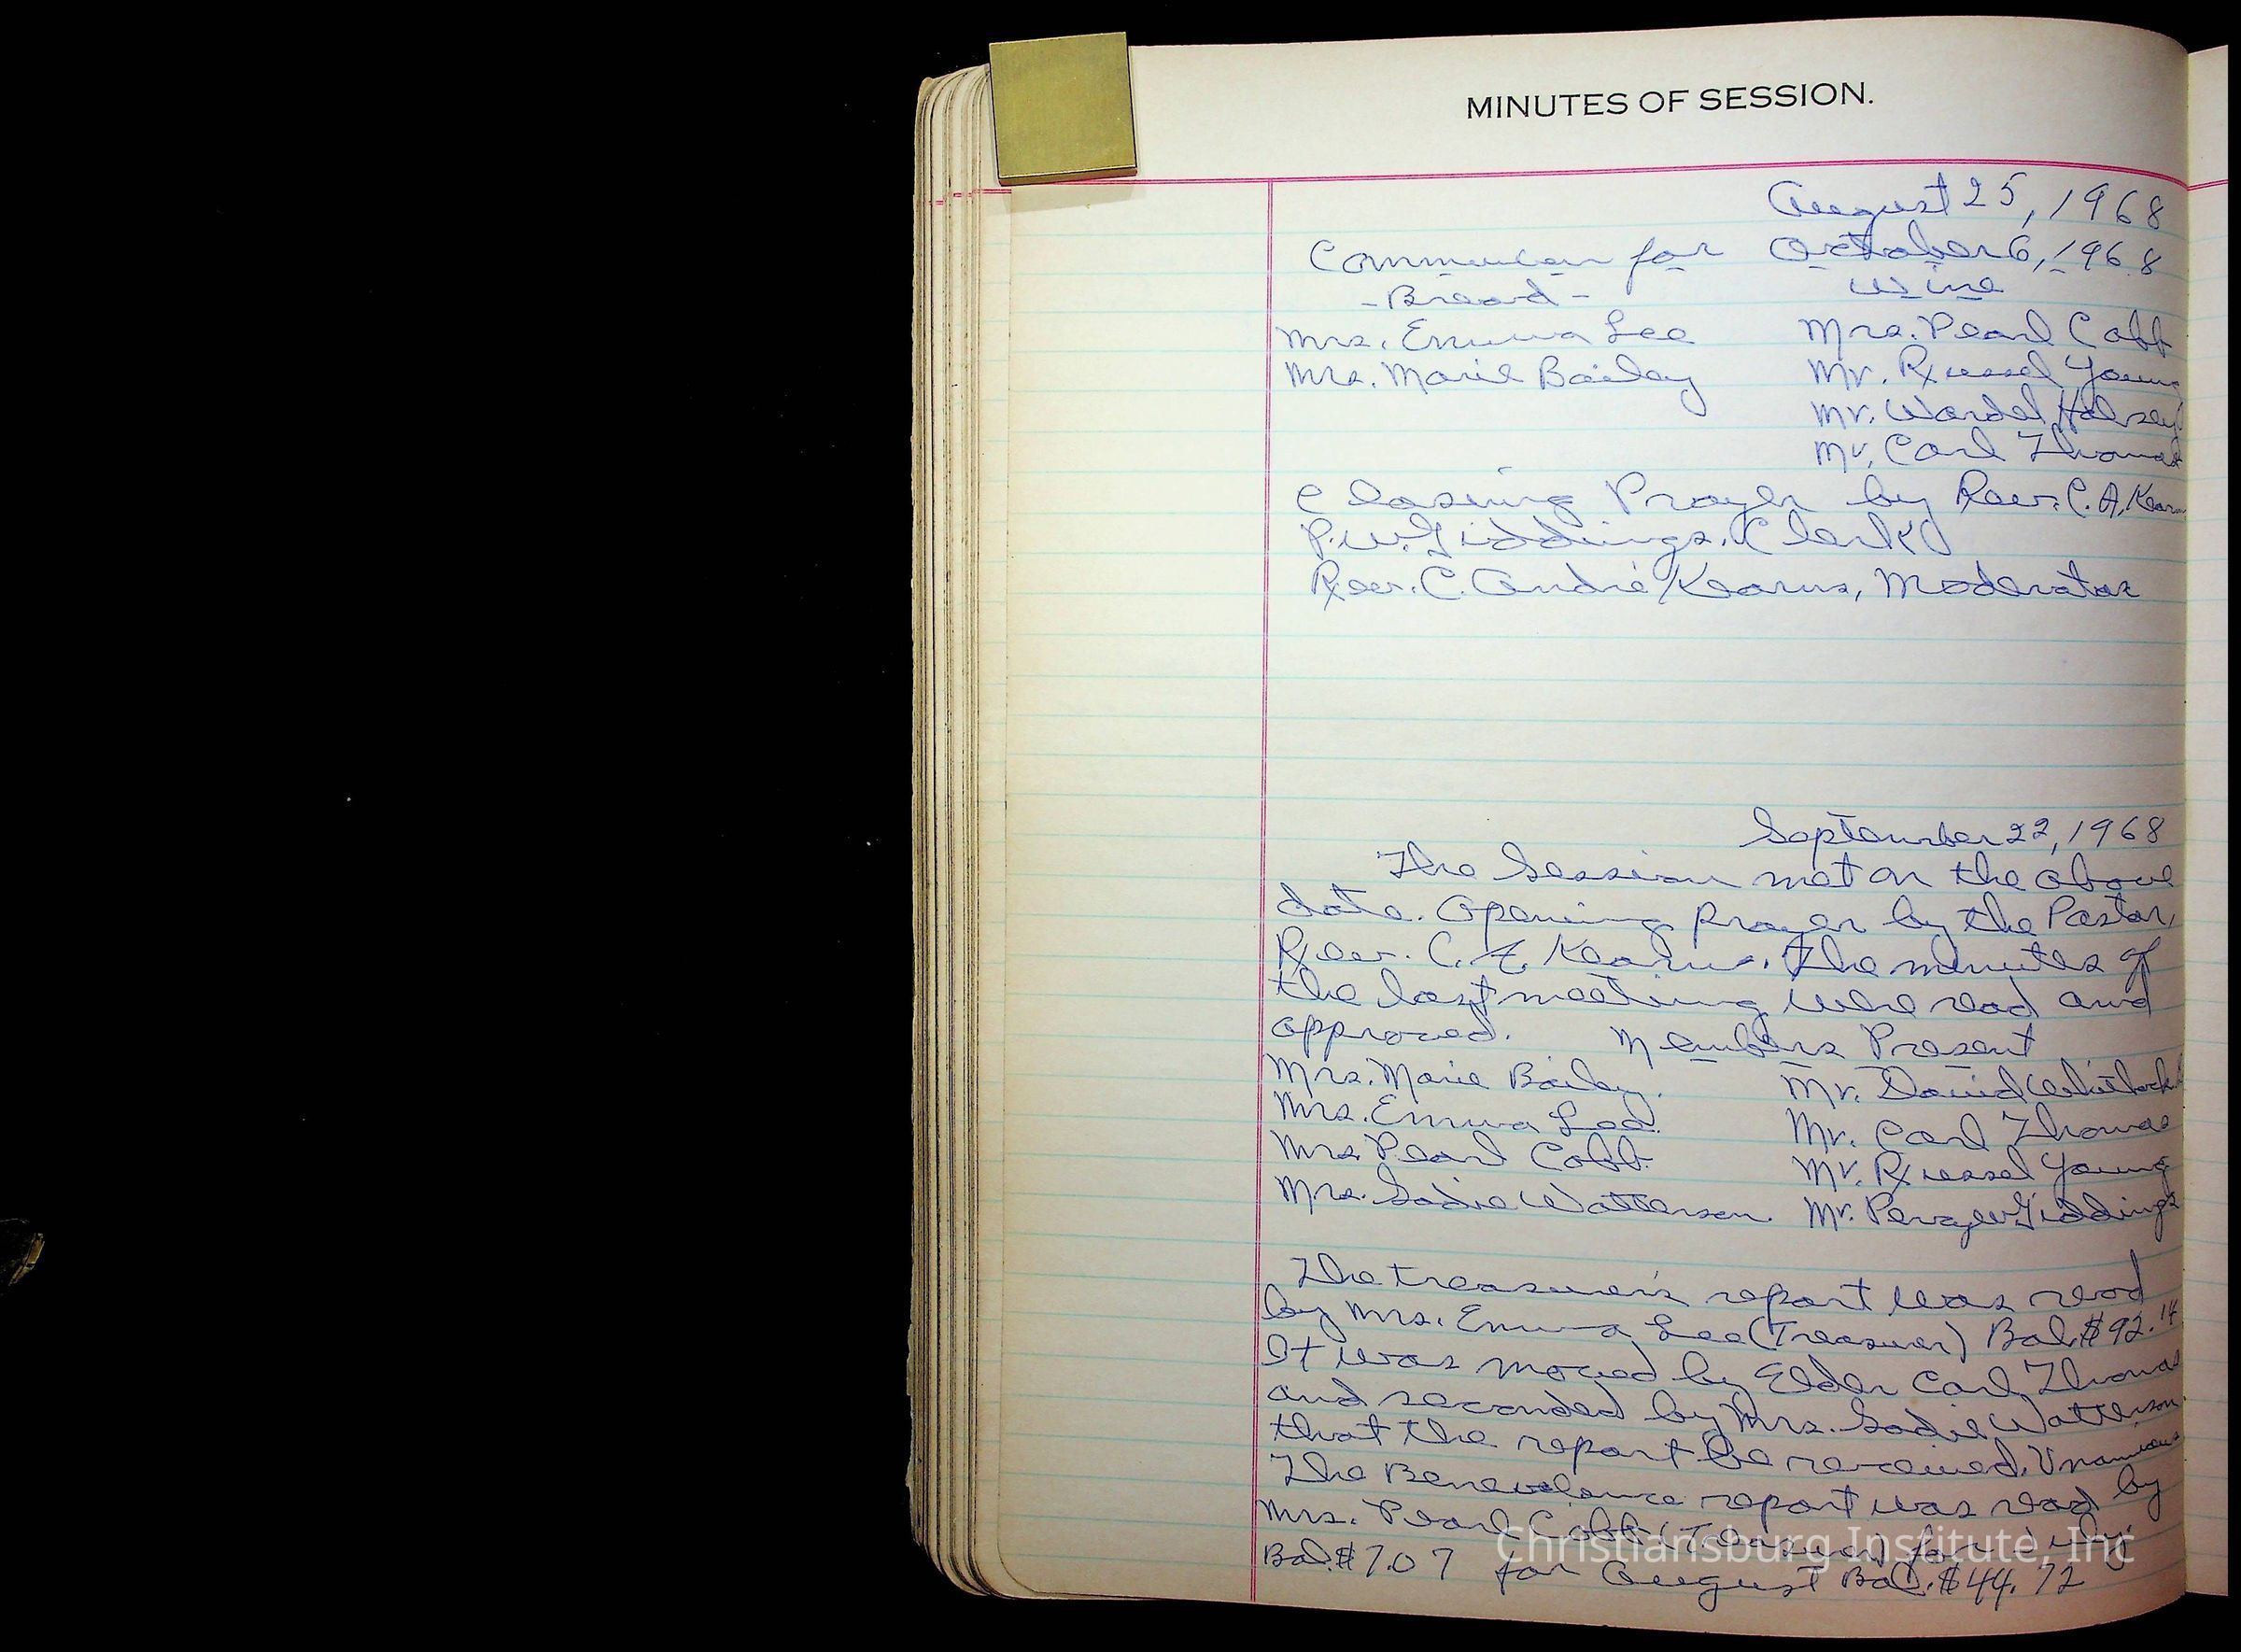 MINUTES OF SESSION.
August 25, 1968
Communion for October 6, 1968
- Bread - Wine
Mrs. Emma Lee Mrs. Pearl Cobb
Mrs. Marie Bailey Mr. Russel Young
Mr. Wardel Halsey
Mr. Carl Thomas
Closing Prayer by Rev. C. A. Kearns
P.W. Giddings, Clerk
Rev. C. André Kearns, Moderator
September 22, 1968
The Session met on the above
date. Opening prayer by the Pastor,
Rev. C. A. Kearns. The minutes of
the last meeting were read and
approved. Members Present
Mrs. Marie Bailey. Mr. David Whitlock
Mrs. Emma Lee. Mr. Carl Thomas
Mrs Pearl Cobb. Mr. Russel Young
Mrs. Sadie Watterson. Mr. Percy W. Giddings
The treasurer's report was read
by Mrs. Emma Lee (Treasurer) Bal. $92.14
It was moved by Elder Carl Thomas
and seconded by Mrs. Sadie Watterson
that the report be received. Unanimous
The Benevolence report was read by
Mrs. Pearl Cobb (Treasurer) for July
Bal. $7.07 for August Bal. $44.72
Christiansburg Institute, Inc